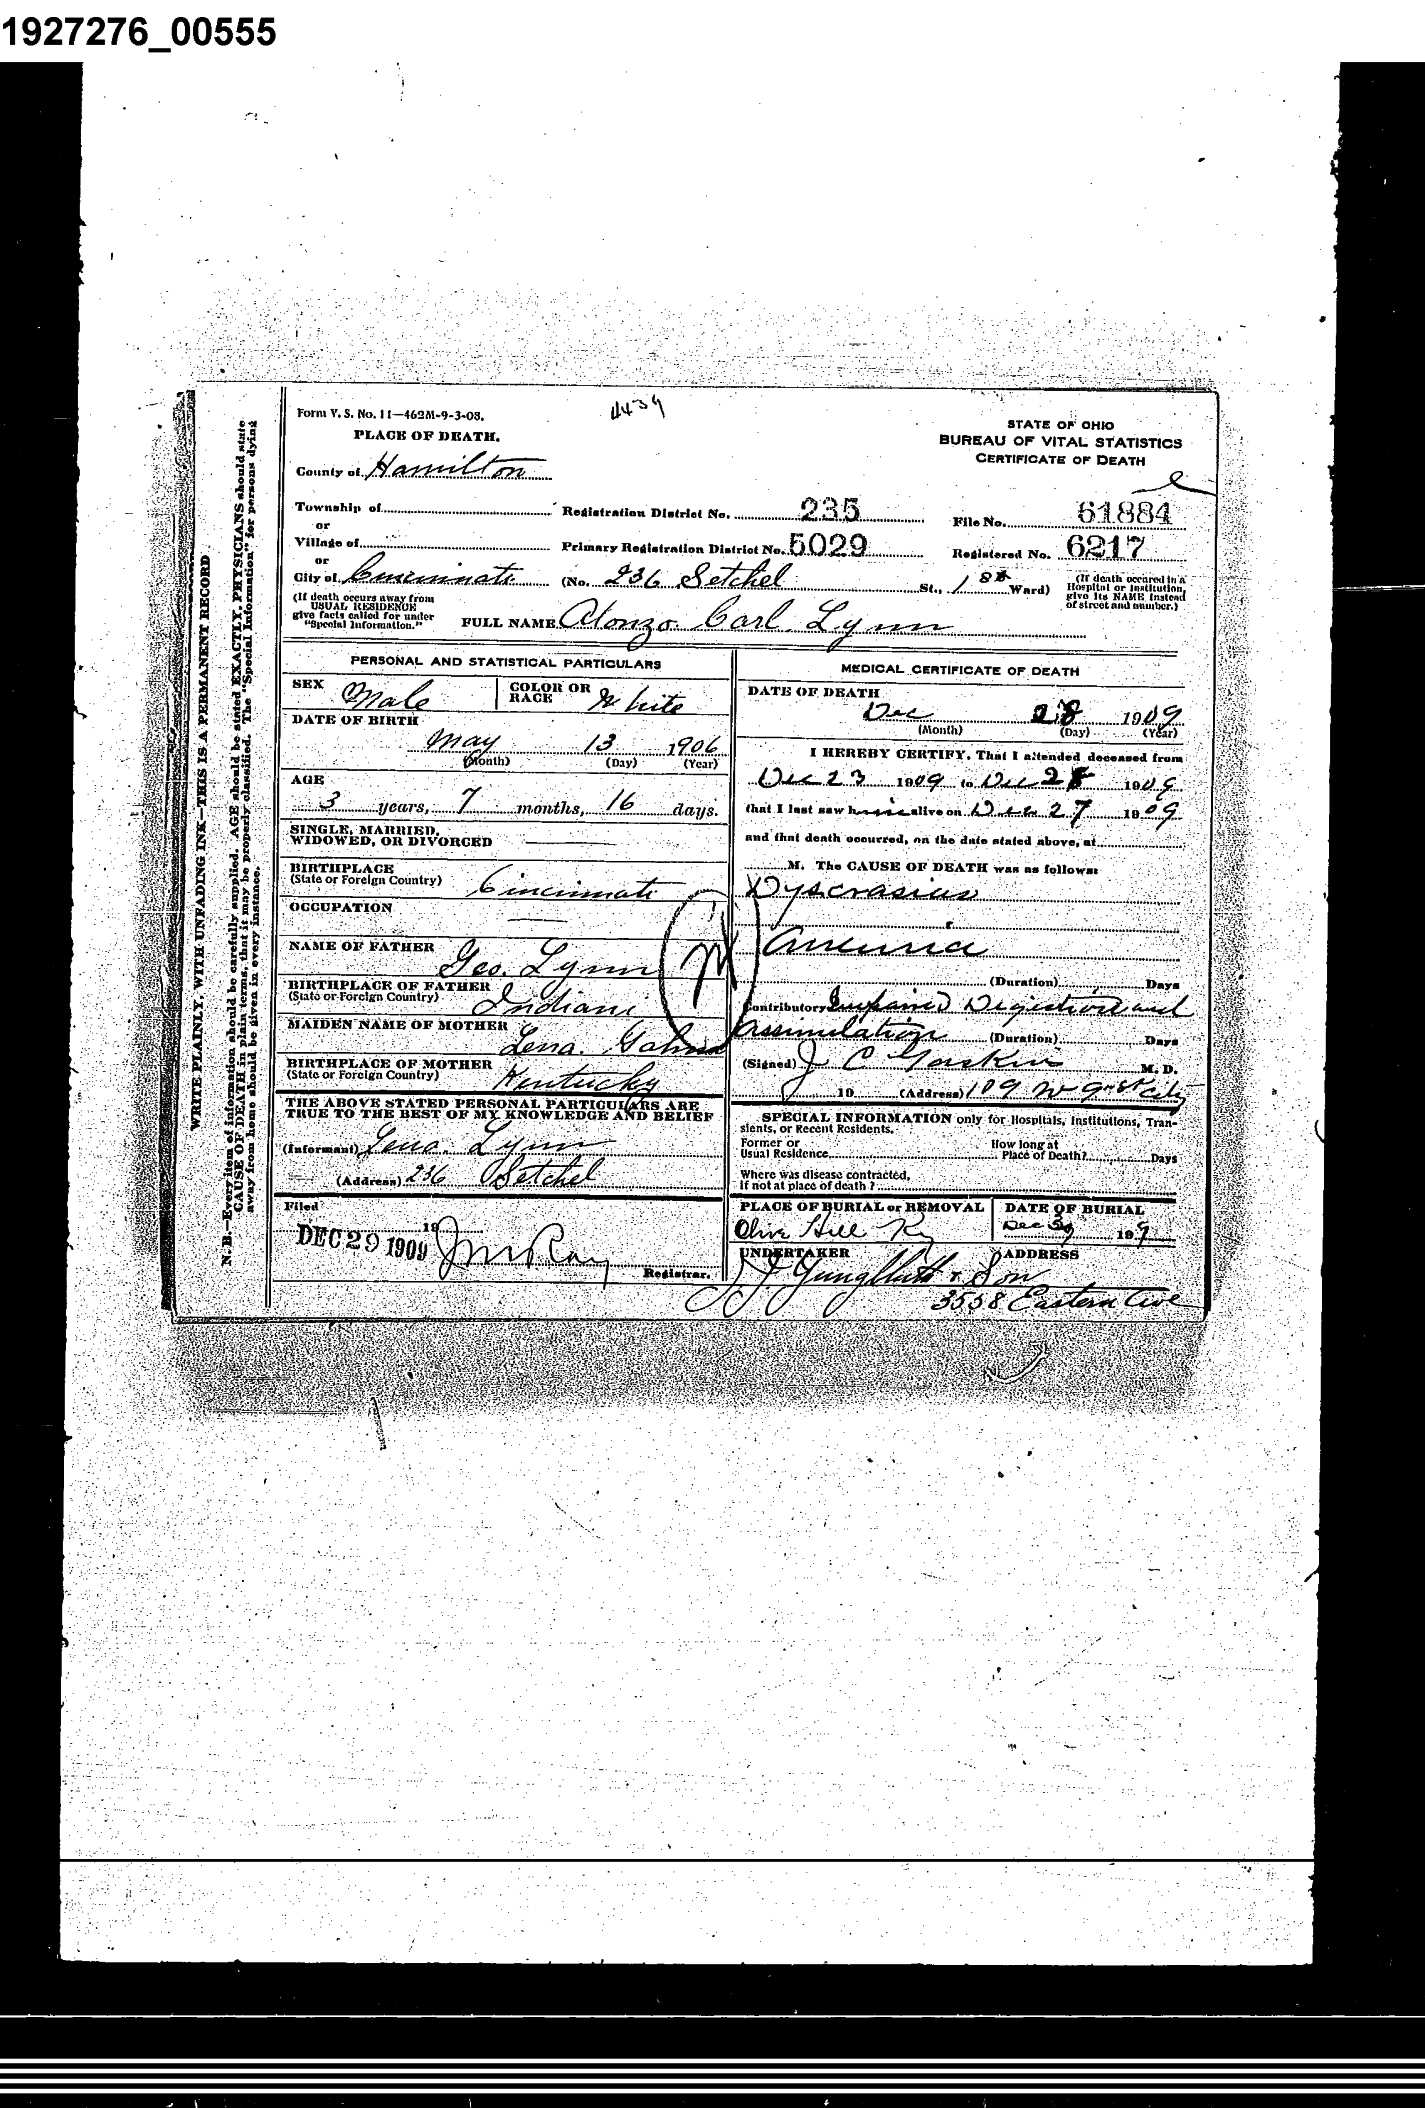 1927276_00555
Form V. S. No. 11—462M-9-3-08.
4439
PLACE OF DEATH.
STATE OF OHIO
BUREAU OF VITAL STATISTICS
CERTIFICATE OF DEATH
County of Hamilton
Township of
or
Village of
or
City of Cincinnati
Registration District No. 235
File No. 61884
Primary Registration District No. 5029
Registered No. 6217
(No. 236 Setchel St., 1 Ward)
(If death occurred in a Hospital or Institution, give its NAME instead of street and number.)
(If death occurs away from USUAL RESIDENCE give facts called for under "Special Information.")
FULL NAME Alonzo Carl Lynn
PERSONAL AND STATISTICAL PARTICULARS
SEX Male
COLOR OR RACE White
DATE OF BIRTH
May 13 1906
(Month) (Day) (Year)
AGE
3 years, 7 months, 16 days.
SINGLE, MARRIED,
WIDOWED, OR DIVORCED
BIRTHPLACE
(State or Foreign Country) Cincinnati
OCCUPATION
NAME OF FATHER Geo. Lynn
BIRTHPLACE OF FATHER
(State or Foreign Country) Indiana
MAIDEN NAME OF MOTHER Lena
BIRTHPLACE OF MOTHER
(State or Foreign Country) Kentucky
THE ABOVE STATED PERSONAL PARTICULARS ARE
TRUE TO THE BEST OF MY KNOWLEDGE AND BELIEF
(Informant) Lynn
(Address) 236 Setchel
Filed
DEC 29 1909 19
Registrar.
MEDICAL CERTIFICATE OF DEATH
DATE OF DEATH
Dec 28 1909
(Month) (Day) (Year)
I HEREBY CERTIFY, That I attended deceased from
Dec 23 1909 to Dec 28 1909
that I last saw him alive on Dec 27 1909
and that death occurred, on the date stated above, at
M. The CAUSE OF DEATH was as follows:
Dyscrasias
Anemia
(Duration) Days
Contributory Impaired Digestion and
Assimilation (Duration) Days
(Signed) J C Gaskins M. D.
19 (Address) 109 W 9th St City
SPECIAL INFORMATION only for Hospitals, Institutions, Tran-
sients, or Recent Residents.
Former or
Usual Residence
How long at
Place of Death? Days
Where was disease contracted,
If not at place of death?
PLACE OF BURIAL or REMOVAL
Olive Hill Ky
DATE OF BURIAL
Dec 30 1909
UNDERTAKER
ADDRESS
& Son
3538 Eastern Ave
WRITE PLAINLY, WITH UNFADING INK—THIS IS A PERMANENT RECORD
N. B.—Every item of information should be carefully supplied. AGE should be stated EXACTLY. PHYSICIANS should state
CAUSE OF DEATH in plain terms, that it may be properly classified. The "Special Information" for persons dying
away from home should be given in every instance.